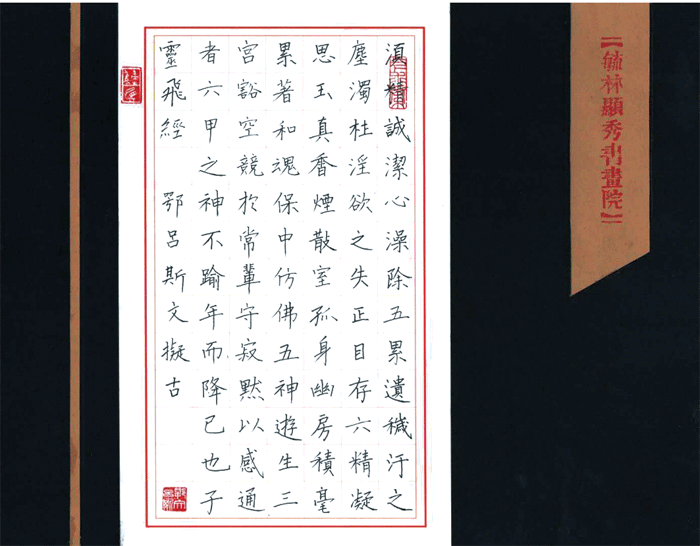 【毓林顯秀書畫院】
湏精誠潔心澡除五累遺穢汙之
塵濁杜淫欲之失正目存六精凝
思玉真香煙散室孤身幽房積毫
累著和魂保中仿佛五神遊生三
宮豁空競於常輩守寂默以感通
者六甲之神不踰年而降已也子
靈飛經 鄂呂斯文擬古